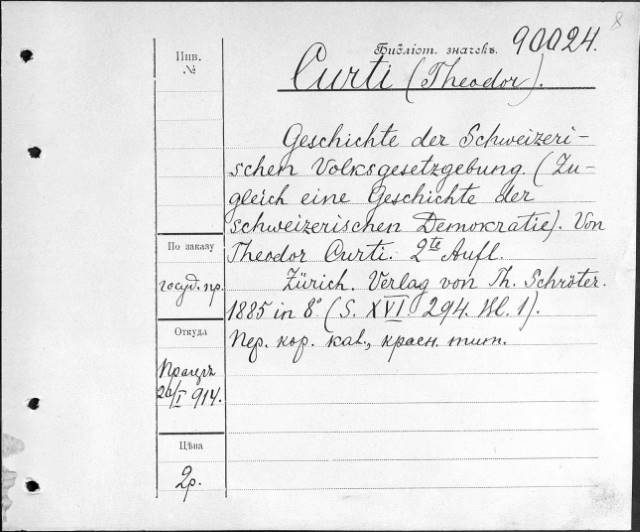 8
Библіот. значекъ. 90024.
Инв.
№
Curti (Theodor).
Geschichte der Schweizeri-
schen Volksgesetzgebung. (Zu-
gleich eine Geschichte der
schweizerischen Demokratie). Von
Theodor Curti. 2te Aufl.
Zürich. Verlag von Th. Schröter.
1885 in 8° (S. XVI. 294. Bl. 1).
Пер. кор. кал., красн. тит.
По заказу
госуд. пр.
Откуда
Прагеръ
26/I 914.
Цѣна
2р.